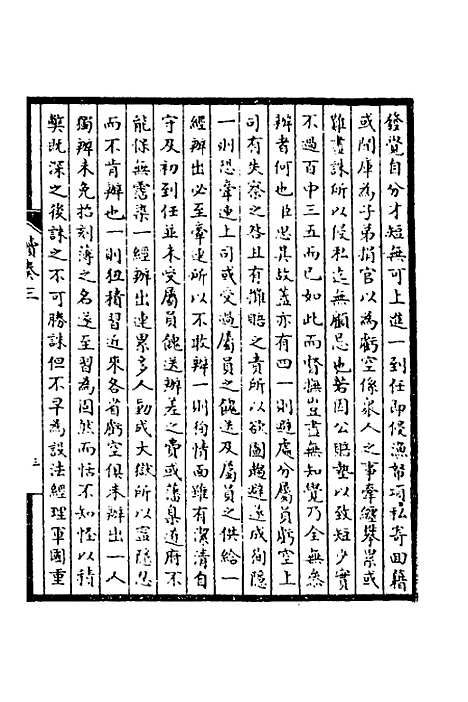 發覺自分才短無可上進一到任即侵漁帑項私寄回籍
或開庫為子弟捐官以為虧空係衆人之事牽纏攀累或
難盡誅所以侵私迄無顧忌也若因公賠墊以致短少實
不過百中三五而已如此而督撫豈盡無知覺乃全無叅
辦者何也臣思其故蓋亦有四一則避處分屬員虧空上
司有失察之咎且有攤賠之責所以欲圖規避遂成徇隱
一則恐牽連上司或受過屬員之餽送及屬員之供給一
經辦出必至牽連所以不敢辦一則徇情面雖有潔清自
守及初到任並未受屬員餽送辦差之費或藩臬道府不
能保無霑染一經辦出連累多人動成大獄所以容隱忍
而不肯辦也一則狃積習近來各省虧空俱未辦出一人
獨辦未免招刻薄之名遂至習為固然而恬不知怪以積
獘既深之後誅之不可勝誅但不早為設法經理軍國重
續奏三
三